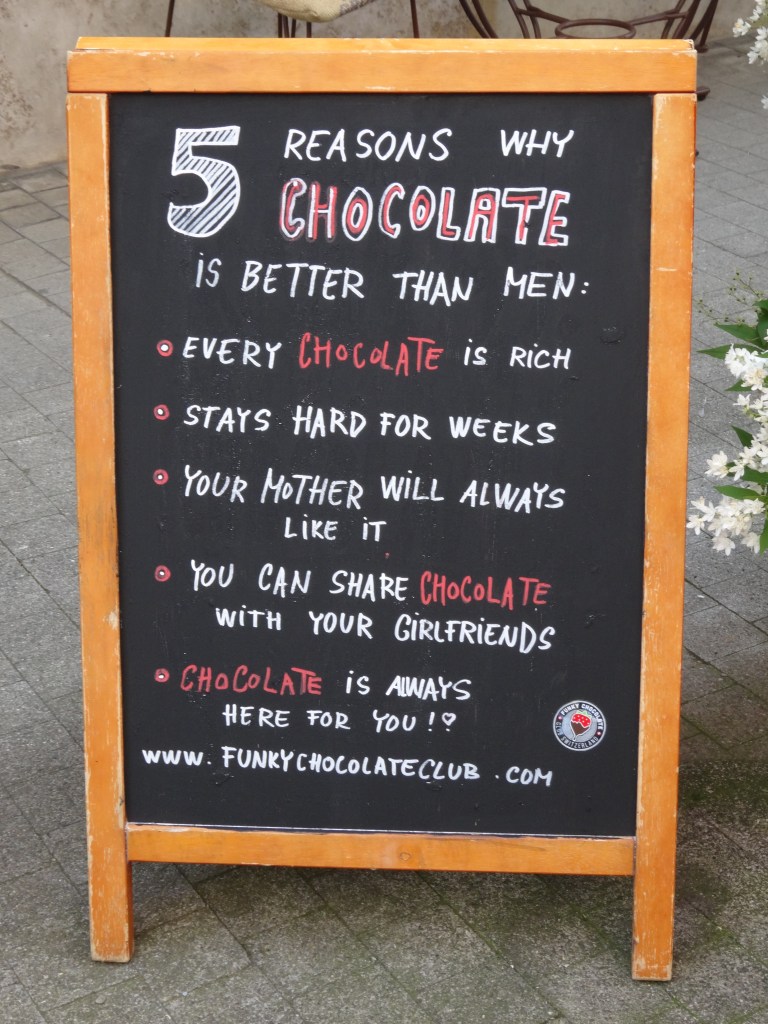 5 REASONS WHY
CHOCOLATE
iS BETTER THAN MEN:
EVERY CHOCOLATE iS RICH
STAYS HARD FOR WEEKS
YOUR MOTHER WILL ALWAYS
LIKE IT
YOU CAN SHARE CHOCOLATE
WITH YOUR GIRLFRIENDS
CHOCOLATE iS ALWAYS
HERE FOR YOU!♡
FUNKY CHOCOLATE
CLUB SWITZERLAND
WWW.FUNKYCHOCOLATECLUB.COM